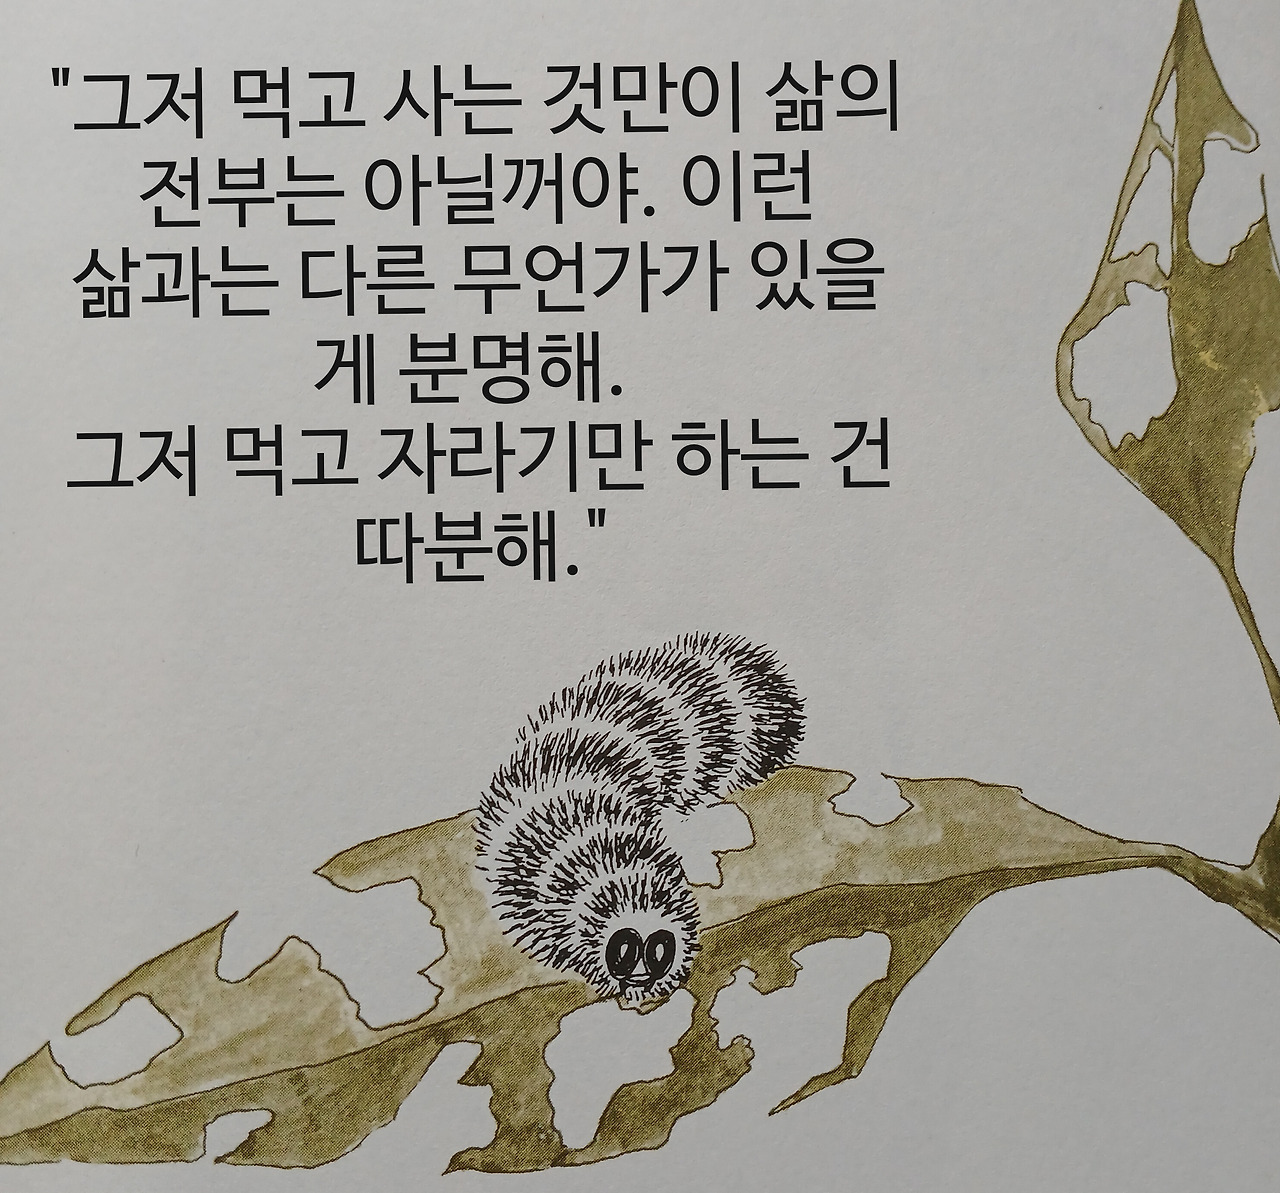 "그저 먹고 사는 것만이 삶의
전부는 아닐꺼야. 이런
삶과는 다른 무언가가 있을
게 분명해.
그저 먹고 자라기만 하는 건
따분해."